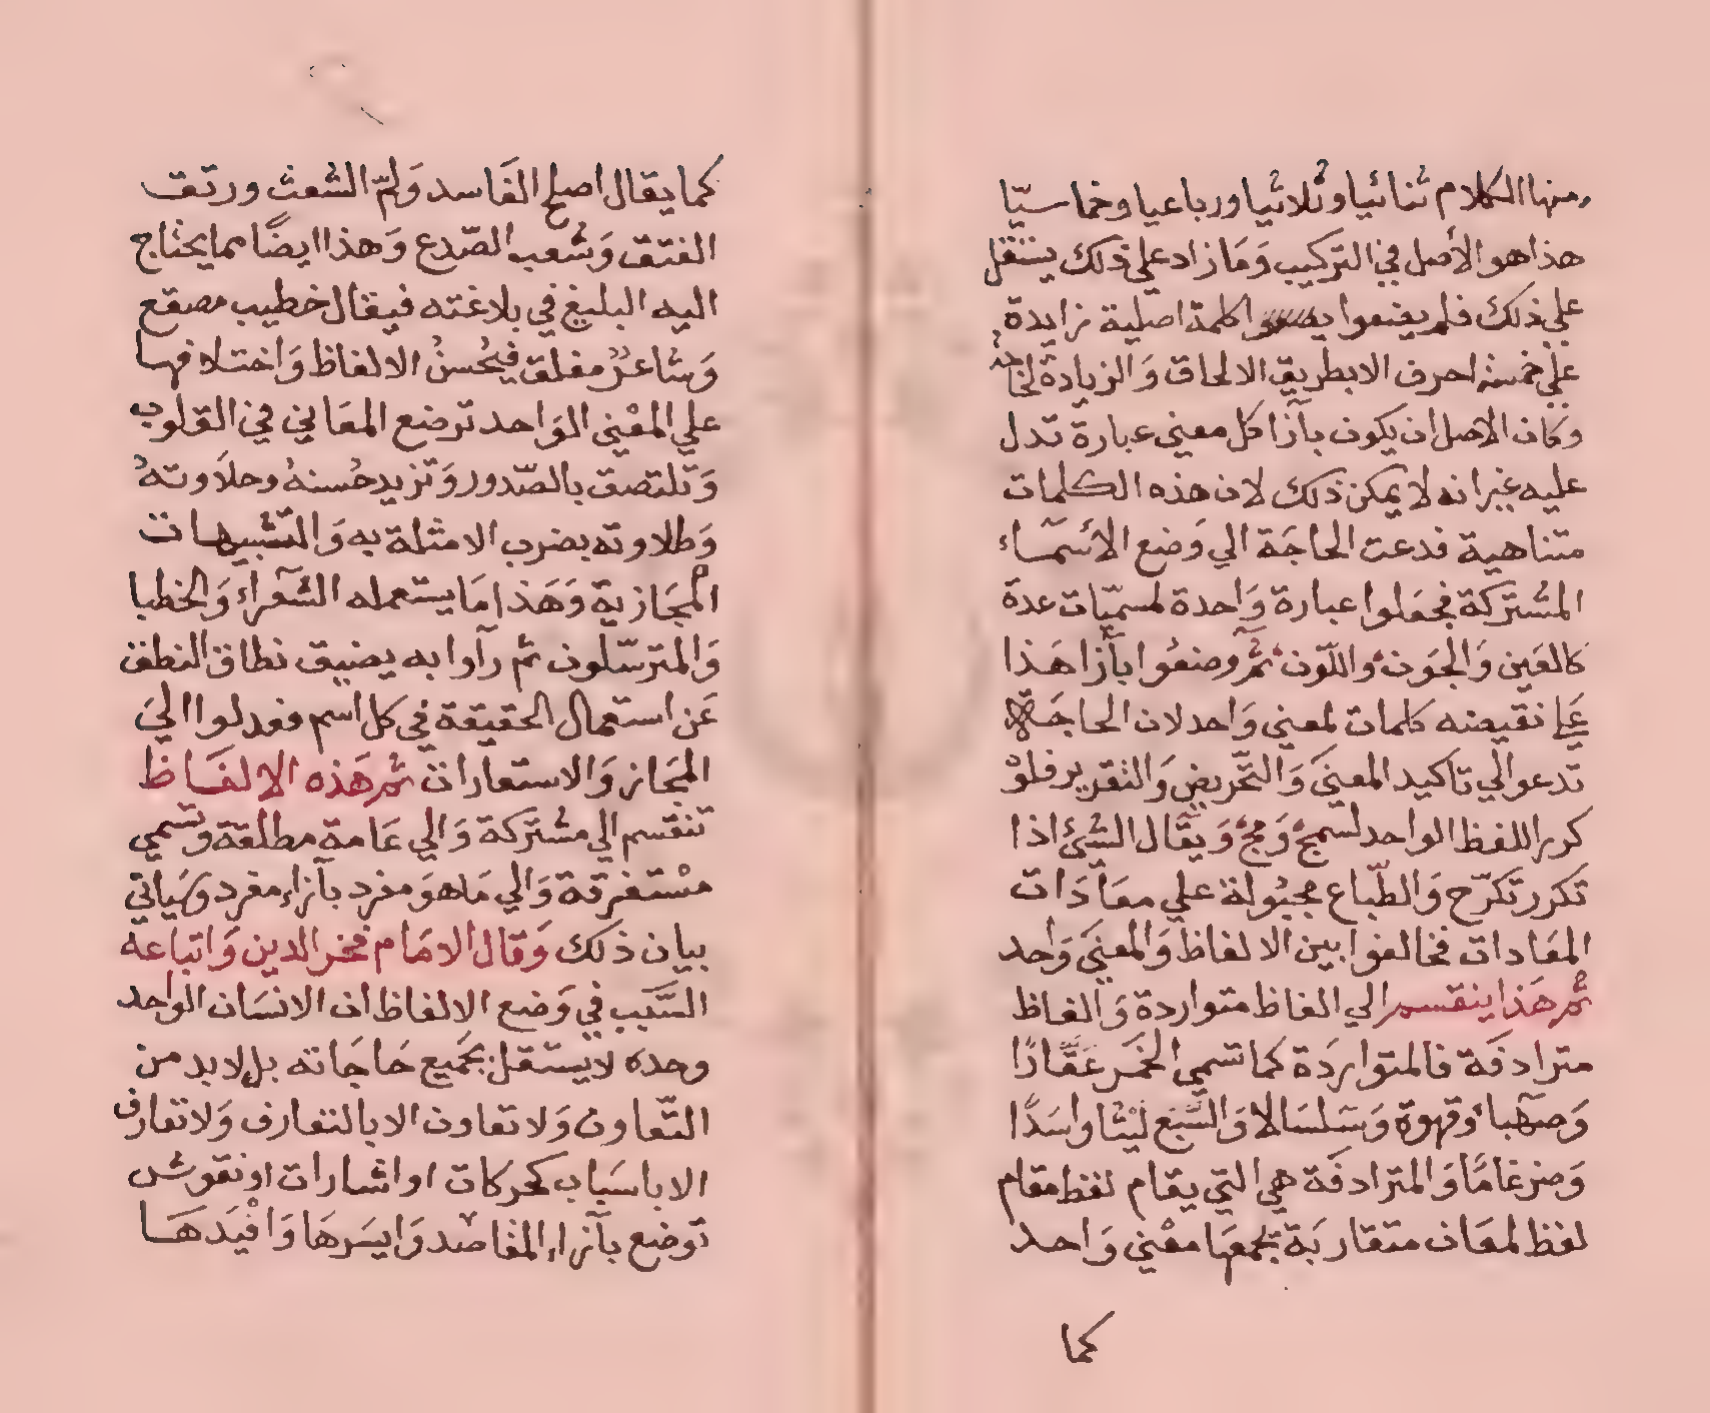 منها الكلام ثنائيا وثلاثيا ورباعيا وخماسيّا
هذا هو الأصل في التركيب وَمَا زاد علي ذلك يستثقل
علي ذلك فلم يضعوا كلمة اصلية زايدة
علي خمسة احرف الا بطريق الالحاق وَالزيادة
وكان الاصل ان يكون بآزا كل معني عبارة تدل
عليه غير انه لا يمكن ذلك لان هذه الكلمات
متناهية فدعت الحاجَة الي وَضع الأسَمّاء
المشتركة فجعَلوا عبارة وَاحدة لمسميّات عدة
كالعَين وَالجَون واللّون ثمَّ وضعُوا بأزا هَذا
عَلي نقيضه كلمات لمعني وَاحد لان الحاجَة
تدعوا لي تاكيد المعنيَ وَالتّحريض وَالتقرير فلوْ
كرر اللفظ الواحد لسمج وَمج وَيقال الشئ اذا
تكرر تكرّح وَالطّباع مجبُولة علي معَادَات
المعَادات فخالفوا بين الالفاظ وَالمعنيَ وَاحد
ثمّ هَذا ينقسم الي الفاظ متواردة وَالفاظ
مترادفَة فالمتواردَة كما تسمي الخمَر عَقَّارًا
وَصهَبا وقهوة وَسَلسَالا وَالسَّبع ليثا واسَدًا
وَضرغامًا وَالمترادفَة هي التي يقام لفظ مقام
لفظ لمعَان متقاربَة تجمعَها معْني وَاحد
كما
كما يقال اصلح الفَاسد وَلمّ الشعث ورتق
الفتق وَشعب الصّدع وَهذا ايضًا مما يحتاج
اليه البليغ في بلاغته فيقال خطيب مصقع
وَشاعرٌ مفلق فيحُسنُ الالفاظ وَاختلافها
علي المعْني الوَاحد ترضع المعَاني في القلوب
وَتلتصق بالصّدور وَتزيد حُسنهُ وحلاَوتهُ
وَطلاوته بضرب الامثلة به وَالتشبيهات
المْجَازية وَهَذا مَا يستعمله الشّعَراء وَالخطبا
وَالمترسّلون ثم رآوا به يضيق نطاق النطق
عَن استعمال الحقيقة في كل اسم فعدلوا اليَ
المجَاز وَالاستعارات ثم هَذه الالفَاظ
تنقسم الي مشتركة وَالي عَامة مطلقة وتسمي
مسْتغرقة وَالي مَا هوَ مفرد بآزاء مفرد وسَياتي
بيان ذلك وَقال الامَام فخر الدين وَاتباعه
السَّبب في وَضع الالفاظ ان الانسَان الواحد
وحدَه لا يستقل بجَميع حَاجَاته بل لا بد من
التّعاون وَلا تعاون الا بالتعارف وَلا تعارف
الا باسبَاب كحركات او اشارات او نقوش
توضع بآزاء المقاصد وَايسَرهَا وَافْيَدهَا